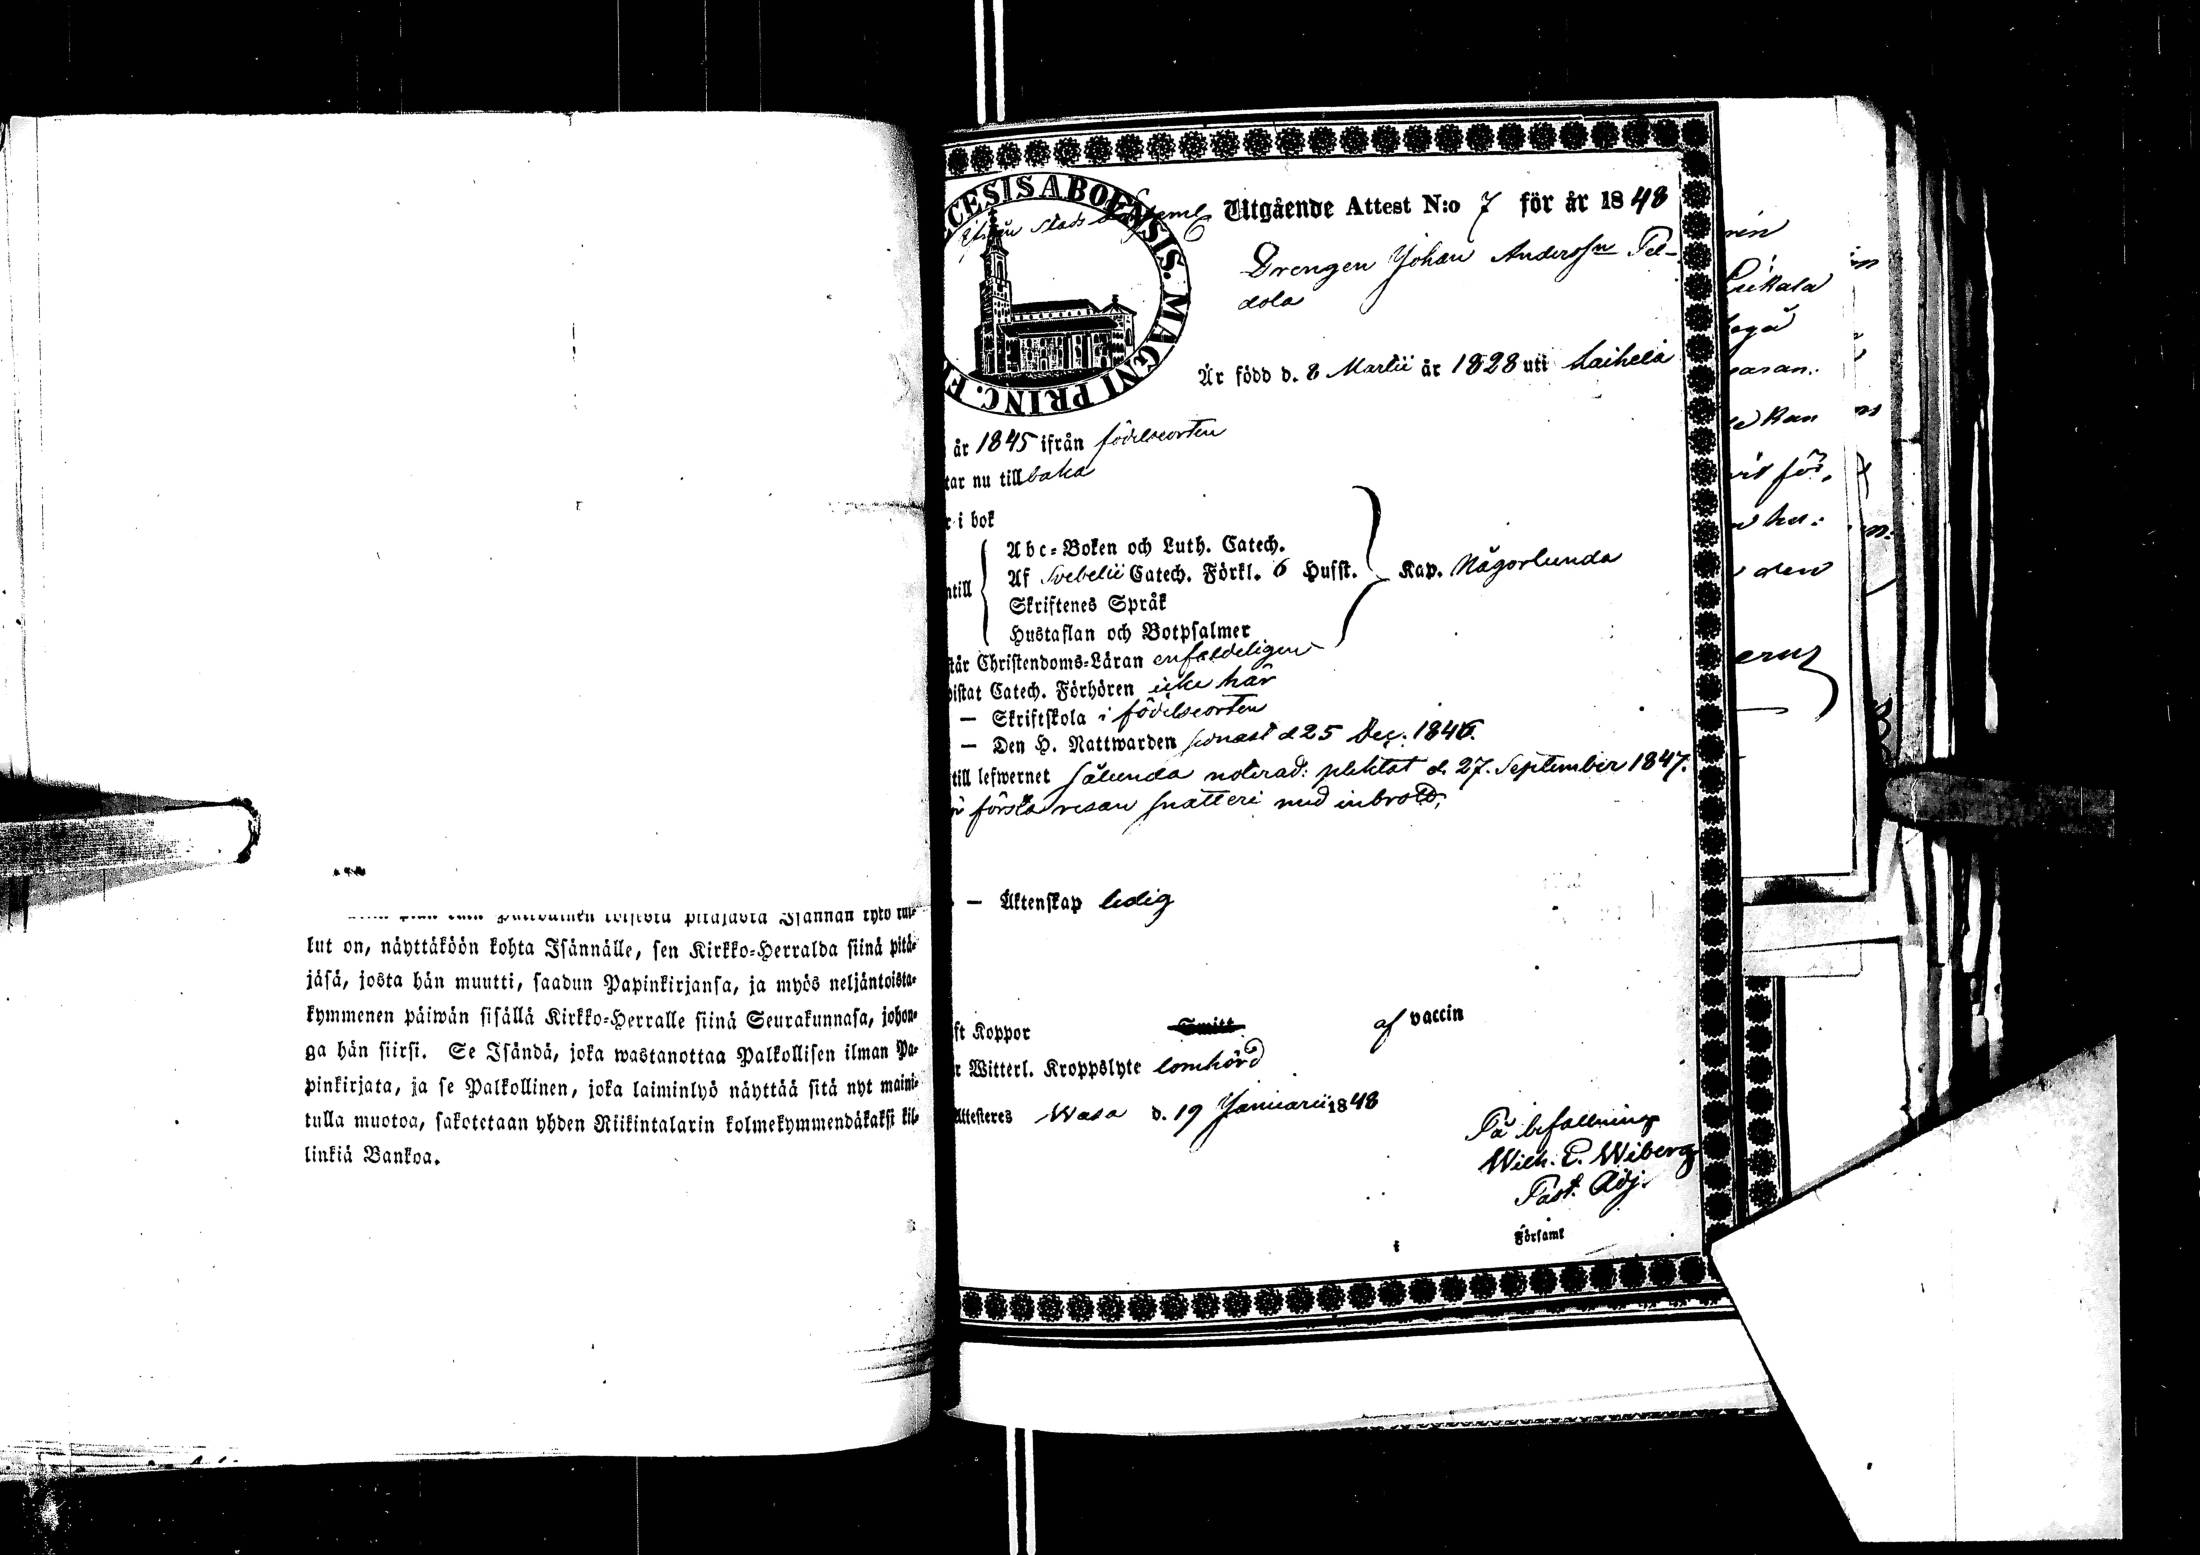 lut on, näyttäköön kohta Isännälle, sen Kirkko-Herralda siinä pitä-
jäsä, josta hän muutti, saadun Papinkirjansa, ja myös neljäntoista-
kymmenen päiwän sisällä Kirkko-Herralle siinä Seurakunnasa, johon-
ga hän siirsi. Se Isändä, joka wastanottaa Palkollisen ilman Pa-
pinkirjata, ja se Palkollinen, joka laiminlyö näyttää sitä nyt maini-
tulla muotoa, sakotetaan yhden Riikintalarin kolmekymmendäkaksi kil-
linkiä Bankoa.
CESIS ABOENSIS. MAGNI PRINC. F
Utgående Attest N:o 7 för år 1848
Drengen Johan Anderssn Pel-
dola
Är född d. 8 Martii år 1828 uti Laihela
år 1845 ifrån födelseorten
tar nu tillbaka
i bok
Abc-Boken och Luth. Catech.
Af Svebelii Catech. Förkl. 6 Hufst.
Kap. Någorlunda
ntill
Skriftenes Språk
Hustaflan och Botpsalmer
står Christendoms-Läran enfaldeligen
vistat Catech. Förhören icke här
— Skriftskola i födelseorten
— Den H. Nattwarden senast d 25 Dec. 1846.
till lefwernet sålunda noterad: pliktat d. 27. September 1847.
första resan snatteri med inbrott,
— Äktenskap ledig
ft Koppor Smitt af vaccin
Witterl. Kroppslyte lomhörd
Attesteres Wasa d. 19 Januarii 1848
På befallning
Wilh. E. Wiberg
Past. Adj.
i Församl
Liikala
kan
vit för,
den